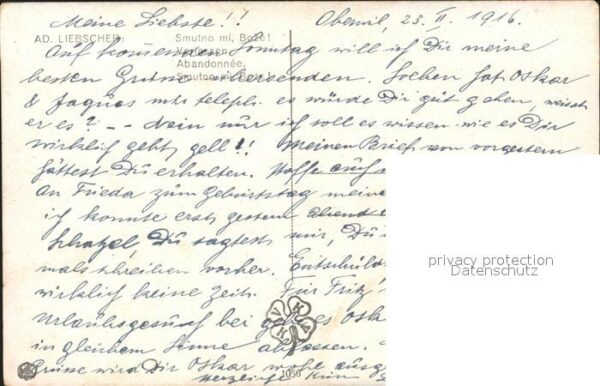 Meine Liebste!! Oberwil, 23. II. 1916.
AD. LIEBSCHER: Smutno mi, Boze!
Auf kommenden Sonntag will ich Dir meine
Abandonnée.
besten Grüsse übersenden. Soeben hat Oskar
& Jaques mir teleph. es würde Dir gut gehen, weisst
er es? – Nein nur ich soll es wissen wie es Dir
wirklich geht, gell!! Meinen Brief von vorgestern
hättest Du erhalten. Hoffe auch
An Frieda zum Geburtstag meine
ich konnte erst gestern abend
Schatzel, Du sagtest mir, Du
mals schreiben vorher. Entschuld
wirklich keine Zeit. Für Fritz
Urlaubsgesuch bei
in gleichem Sinne abfassen.
Grüsse wird Dir Oskar wohl ausg
herzlich
1056
privacy protection
Datenschutz